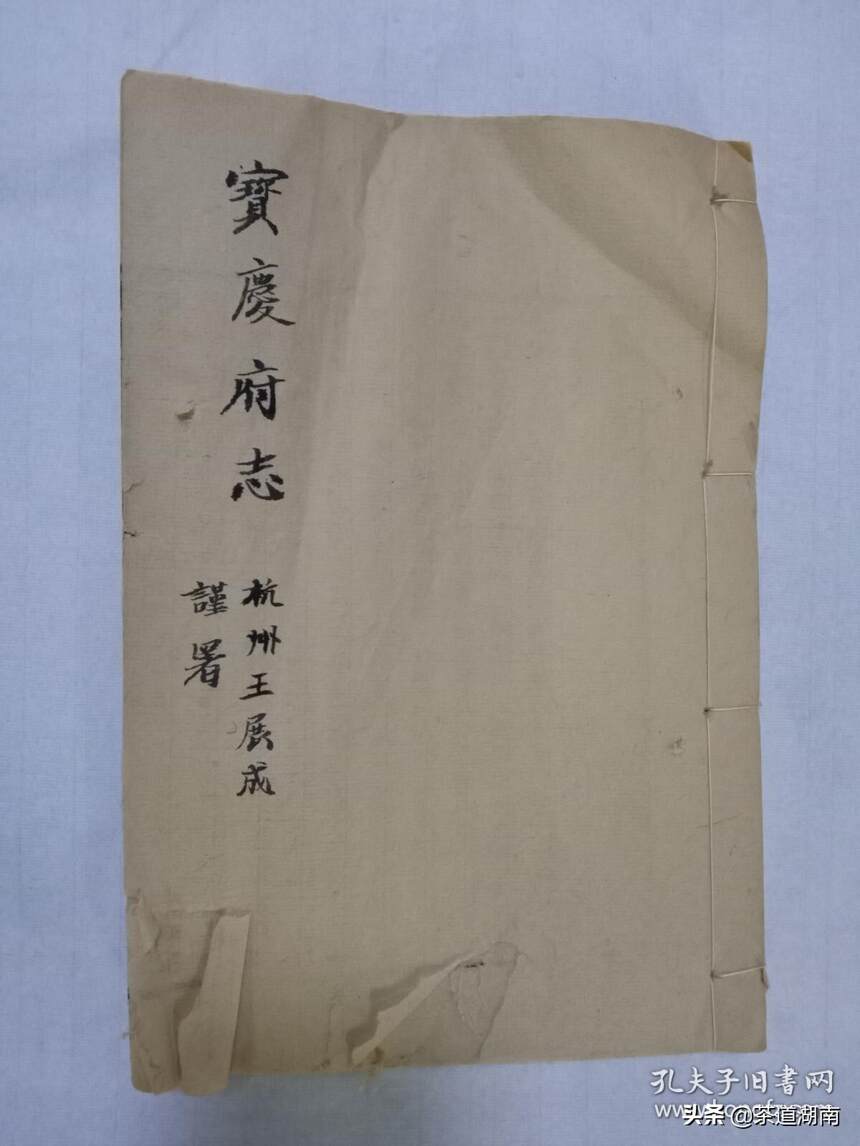 寶慶府志
杭州王展成
謹署
孔夫子旧书网
头条@茶道湖南